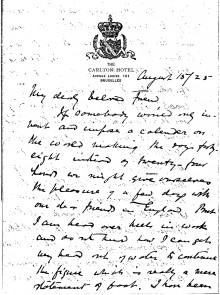 THE
CARLTON HOTEL
AVENUE LOUISE, 191
BRUXELLES
August 15/25
My dearly Beloved Friend
If somebody would only in-
vent and impose a calendar on
the world making the days forty
eight instead of twenty-four
hours we might give ourselves
the pleasure of a few days with
our dear friends in England. But
I am head over heels in work
and do not know how I can get
my head out of water to continue
the figure which is really a mere
statement of fact. I have been